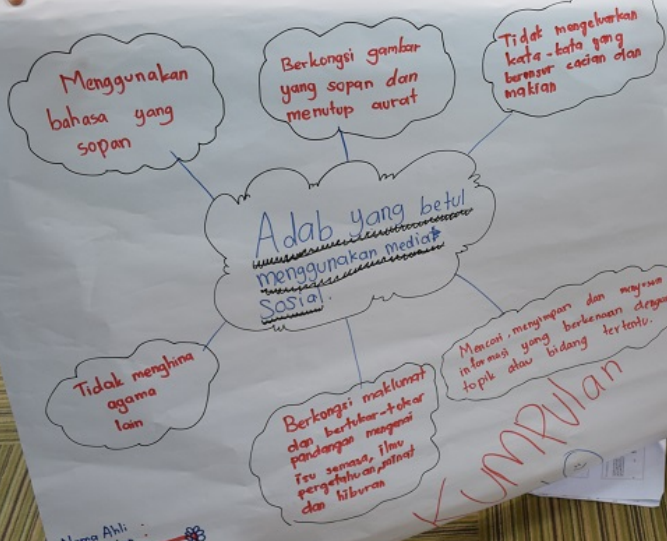 Menggunakan
bahasa yang
sopan
Berkongsi gambar
yang sopan dan
menutup aurat
Tidak mengeluarkan
kata-kata yang
berunsur cacian dan
makian
Adab yang betul
menggunakan media
Sosial.
Tidak menghina
agama
lain
Berkongsi maklumat
dan bertukar-tukar
pandangan mengenai
isu semasa, ilmu
pengetahuan, minat
dan hiburan
Mencari, menyimpan dan menyusun
informasi yang berkenaan dengan
topik atau bidang tertentu.
KUMPULAN
Nama Ahli :